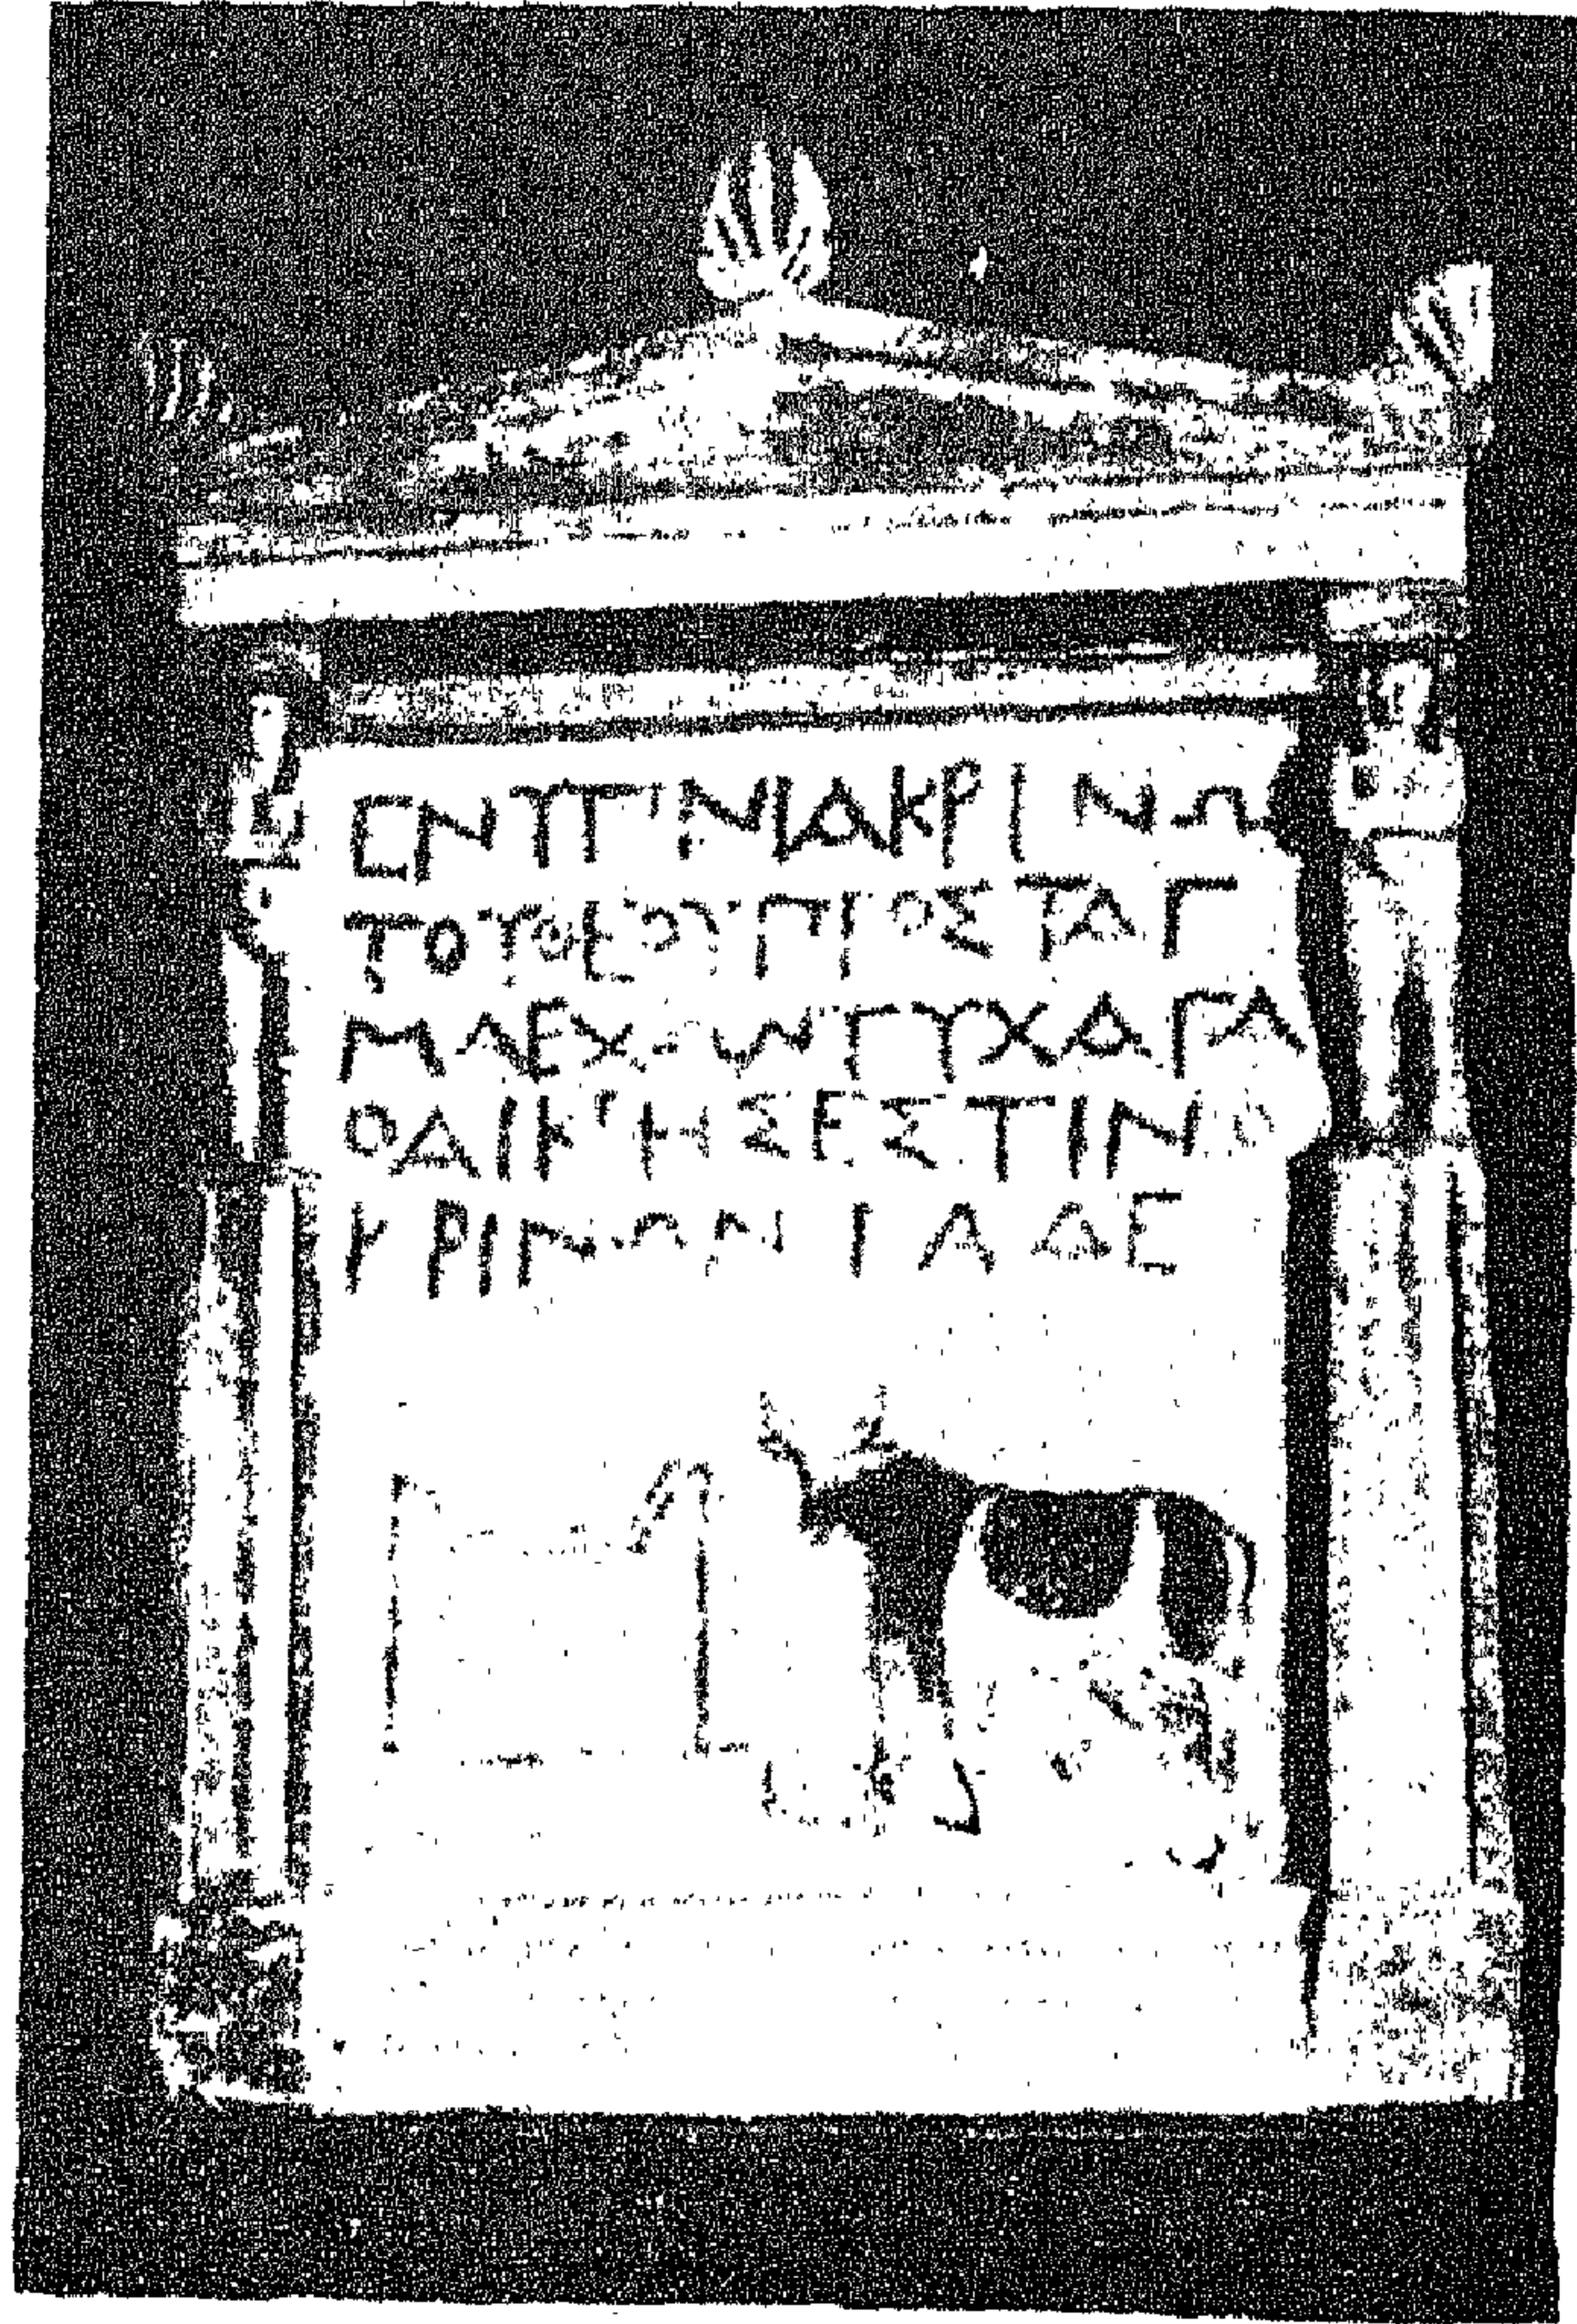 ΕΝΥΠΝΙΑΚΡΙΝΩ
ΤΟΥΘΕΟΥΠΡΟΣΤΑΓ
ΜΑΕΧΩΝΤΥΧΑΓΑ
ΘΑΙΚΡΗΣΕΣΤΙΝΟ
ΚΡΙΝΩΝΤΑΔΕ